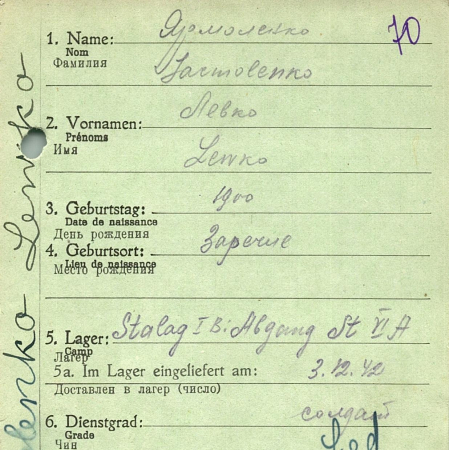 1. Name: Ярмоленко 70
Nom
Фамилия Jarmolenko
2. Vornamen: Левко
Prénoms
Имя Lewko
3. Geburtstag: 1900
Date de naissance
День рождения
4. Geburtsort: Заречие
Lieu de naissance
Место рождения
5. Lager: Stalag I B: Abgang St VI A
Camp
Лагерь
5a. Im Lager eingeliefert am: 3.12.42
Доставлен в лагерь (число)
6. Dienstgrad: солдат
Grade
Чин
lenko Lewko